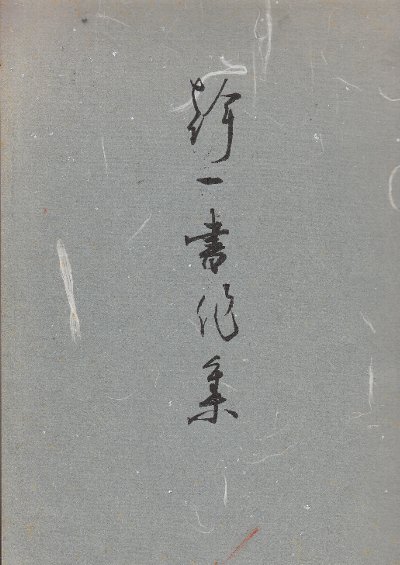 幹一書作集